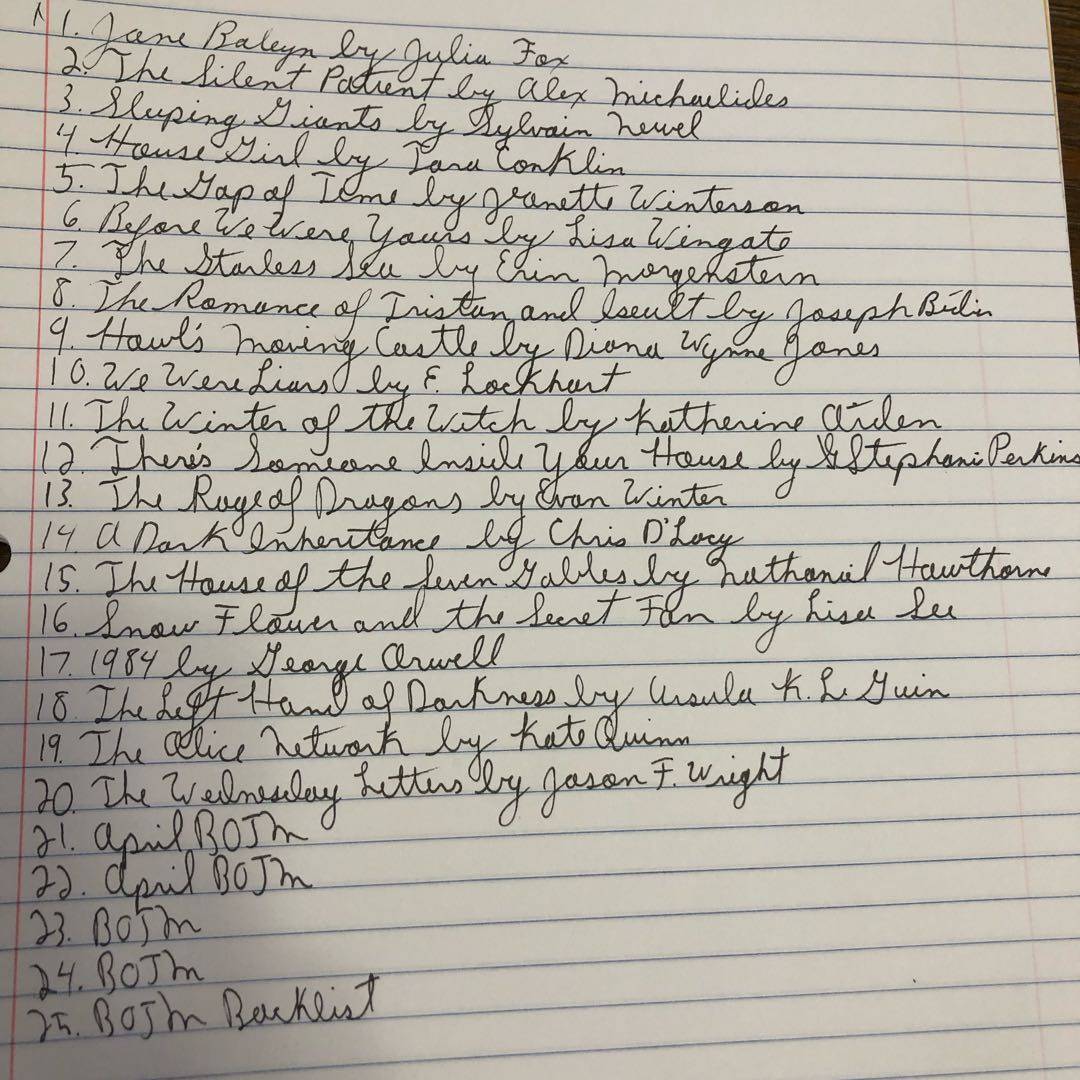 1. Jane Boleyn by Julia Fox
2. The Silent Patient by Alex Michaelides
3. Sleeping Giants by Sylvain Neuvel
4 House Girl by Tara Conklin
5. The Gap of Time by Jeanette Winterson
6. Before We Were Yours by Lisa Wingate
7. The Starless Sea by Erin Morgenstern
8. The Romance of Tristan and Iseult by Joseph Bédier
9. Howl's Moving Castle by Diana Wynne Jones
10. We Were Liars by E. Lockhart
11. The Winter of the Witch by Katherine Arden
12. There's Someone Inside Your House by Stephani Perkins
13. The Rage of Dragons by Evan Winter
14 A Dark Inheritance by Chris D'Lacy
15. The House of the Seven Gables by Nathaniel Hawthorne
16. Snow Flower and the Secret Fan by Lisa See
17. 1984 by George Orwell
18. The Left Hand of Darkness by Ursula K. Le Guin
19. The Alice Network by Kate Quinn
20. The Wednesday Letters by Jason F. Wright
21. April BOTM
22. April BOTM
23. BOTM
24. BOTM
25. BOTM Backlist